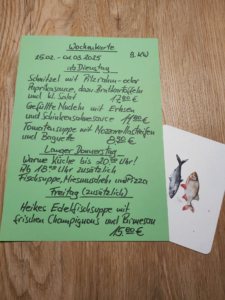 Wochenkarte
25.02 - 02.03.2025 9. KW
ab Dienstag
Schnitzel mit Pilzrahm- oder
Paprikasauce, dazu Bratkartoffeln
und kl. Salat
17,50 €
Gefüllte Nudeln mit Erbsen
und Schinkensahnesauce 14,90 €
Tomatensuppe mit
und Baguette 8,90 €
Langer Donnerstag
Warme Küche bis 20:00 Uhr!
Ab 18:00 Uhr zusätzlich
Fischsuppe, Miesmuscheln und Pizza
Freitag (zusätzlich)
Heikes Edelfischsuppe mit
frischen Champignons und
15,90 €